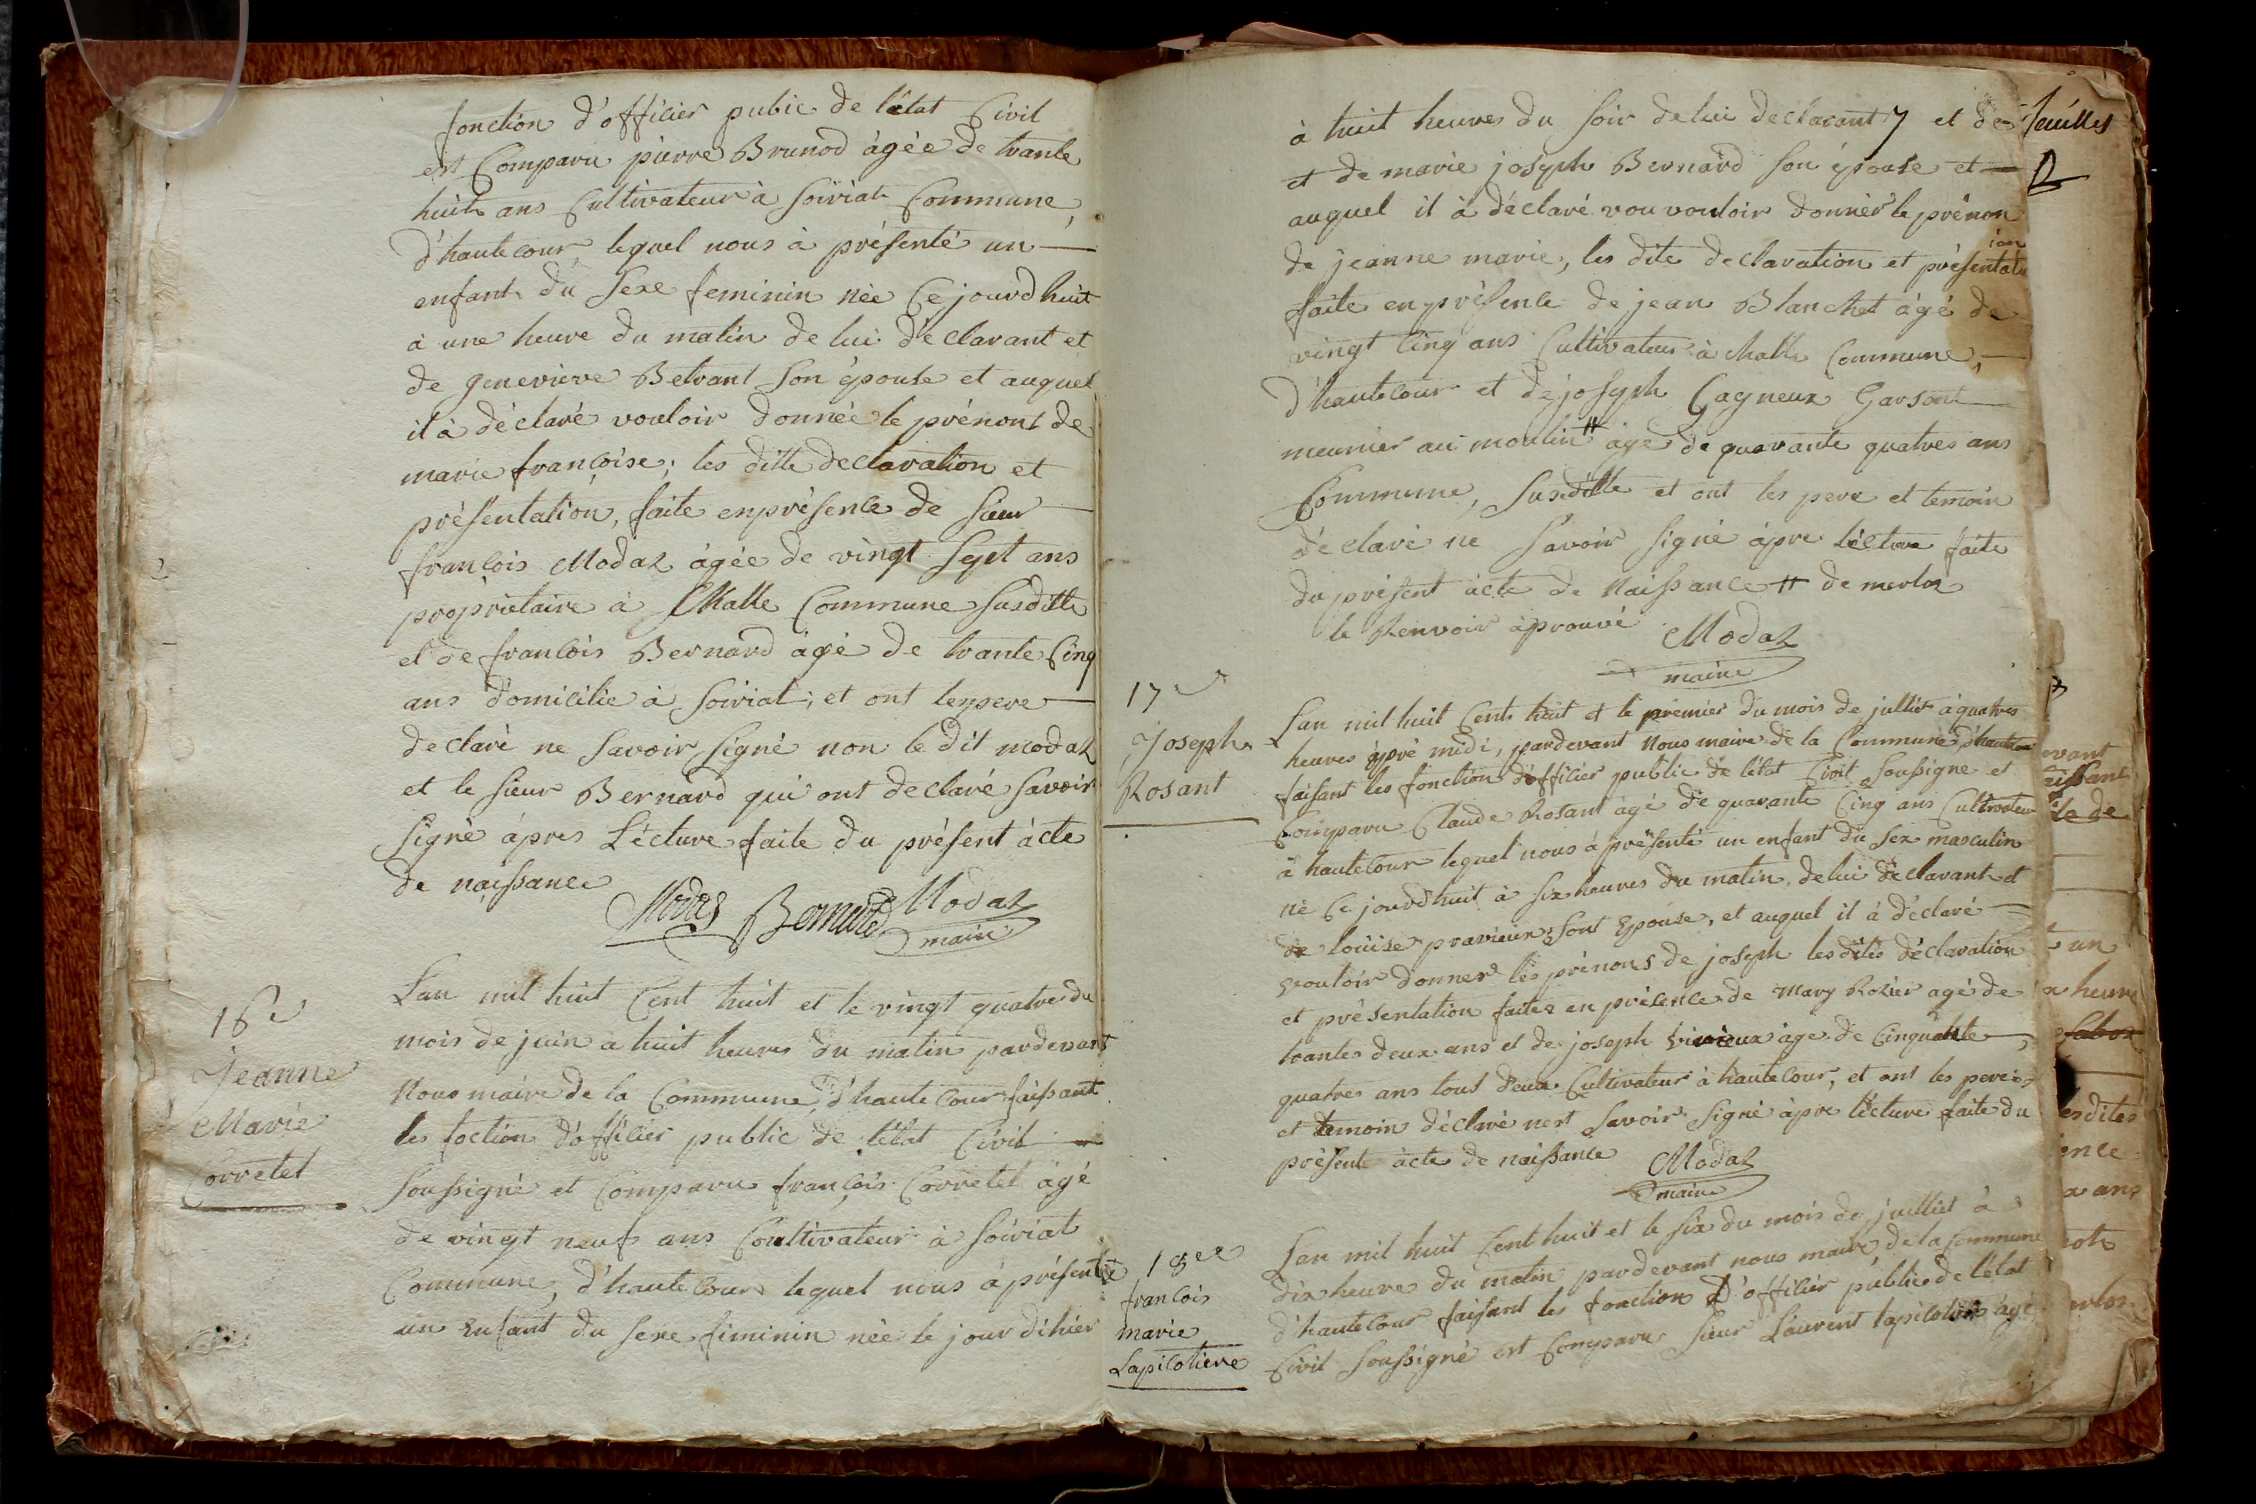 fonction d'officier pubic de l'état Civil
est Comparu pierre Brunod âgée de trante
huit ans Cultivateur à Soiriat Commune,
d'hautecour, lequel nous à présenté un
enfant du Sexe feminin née Cejourdhuit
à une heure du matin de lui déclarant et
de genevieve Betrant Son épouse et auquel
il à déclaré vouloir donnée le prénont de
marie françoise; les ditte declaration et
présentation, faite enprésence de Sieur
françois Modas âgée de vingt Sept ans
propriétaire à Challe Commune Susditte
et de françois Bernard âgé de trante Cinq
ans domicilie à Soiriat; et ont lepere
declaré ne Savoir Signé non le dit modas
et le Sieur Bernard qui ont declaré Savoir
Signé âpres Lécture faite du présent àcte
de naissance
Modas Bernard Modas
maire
16e
Jeanne
Marie
Corretet
Lan mil huit Cent huit et le vingt quatre du
mois de juin a huit heures du matin pardevant
Nous maire de la Commune, d'hautecour faissant
les foction d'officier public de l'état Civil
Soussigné et Comparu françois Corretet âgé
de vingt neuf ans Coultivateur à Soiriat
Commune, d'hautecour lequel nous à présenté
un enfant du Sexe fiminin née le jour dihier
à huit heures du Soir de lui declarant 7 et de
et de marie joseph Bernard Son épouse et
auquel il à déclaré vou vouloir donner le prénon
de jeanne marie, les dite declaration et présentation
faite enprésence de jean Blanchet âgé de
vingt Cinq ans Cultivateur à challe Commune,
d'hautecour et de joseph Cagneux Garsont
meunier au moulin # âge de quarante quatres ans
Commune, Susditte et ont les pere et temoin
déclaré ne Savoir Signé âpre lécture faite
du présent àcte de Naissance # de merloz
le Renvoir àprouvé
Modas
maire
feuilles
17e
Joseph
Rosant
Lan mil huit Cents huit et le premier du mois de julliet à quatres
heures âpré midi, pardevant Nous maire de la Commune d'hautecour
faisant les fonction d'officier public de l'état Civil Soussigne et
Comparu Claude Rosant âgé de quarante Cinq ans Cultivateur
à hautecour lequel nous à présenté un enfant du Sex masculin
né Cejourdhuit à Six heures du matin, de lui declarant et
de louise pravieux Sont Epouse, et auquel il à déclaré
vouloir donner les prénons de joseph les dites déclaration
et présentation faites en présence de Mary Rozier agé de
trantes deux ans et de joseph âge de Cinquante
quatres ans tout deux Cultivateur à hautecour, et ont les pere
et temoin déclaré nest Savoir Signé âpre lécture faite du
présent àcte de naissance
Modas
maire
18ee
francois
marie
Lapicotiere
Lan mil huit Cent huit et le Six du mois de juilliet à
dix heure du matin pardevant nous maire de la Commune
d'hautecour faisant les fonction D'officier public de l'état
Civil Soussigné est Comparu Sieur Laurent lapicotiere âgé
evant
aissant
un
a heure
esdites
ence
x ans